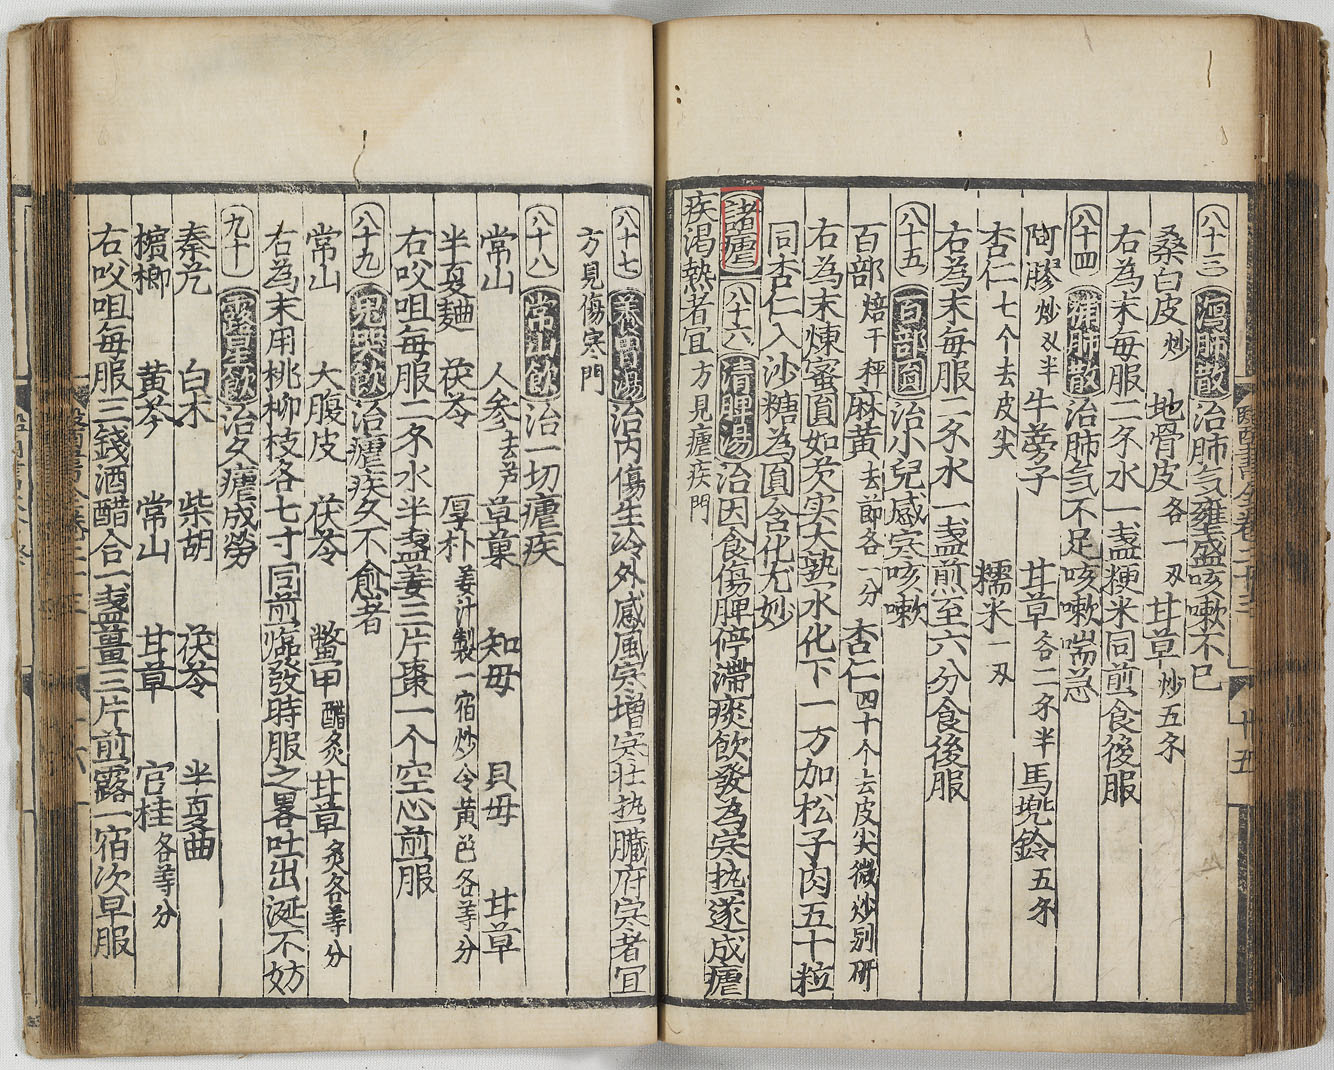 八十三 瀉肺散 治肺气壅盛咳嗽不已
桑白皮炒 地骨皮各一刄 甘草炒五分
右為末每服二分水一盞粳米同煎食後服
八十四 補肺散 治肺气不足咳嗽喘急
阿膠炒刄半 牛蒡子 甘草各二分半 馬兜鈴五分
杏仁七个去皮尖 糯米一刄
右為末每服二分水一盞煎至六分食後服
八十五 百部圎 治小兒感寒咳嗽
百部焙干秤 麻黄去節各一分 杏仁四十个去皮尖微炒别研
右為末煉蜜圎如芡实大熟水化下一方加松子肉五十粒
同杏仁入沙糖為圎含化尤妙
諸瘧 八十六 清脾湯 治因食傷脾停滯痰飲發為寒热遂成瘧
疾渴熱者宜 方見瘧疾門
八十七 養胃湯 治内傷生冷外感風寒增寒壮热臟府寒者宜
方見傷寒門
八十八 常山飲 治一切瘧疾
常山 人参去芦 草菓 知母 貝母 甘草
半夏麯 茯苓 厚朴姜汁製一宿炒令黄色各等分
右㕮咀每服二分水半盞姜三片棗一个空心煎服
八十九 鬼哭飲 治瘧疾久不愈者
常山 大腹皮 茯苓 鱉甲醋炙 甘草炙各等分
右為末用桃柳枝各七寸同煎臨發時服之畧吐出涎不妨
九十 露星飲 治久瘧成勞
秦艽 白术 柴胡 茯苓 半夏曲
檳榔 黄芩 常山 甘草 官桂各等分
右㕮咀每服三錢酒醋合一盞薑三片煎露一宿次早服